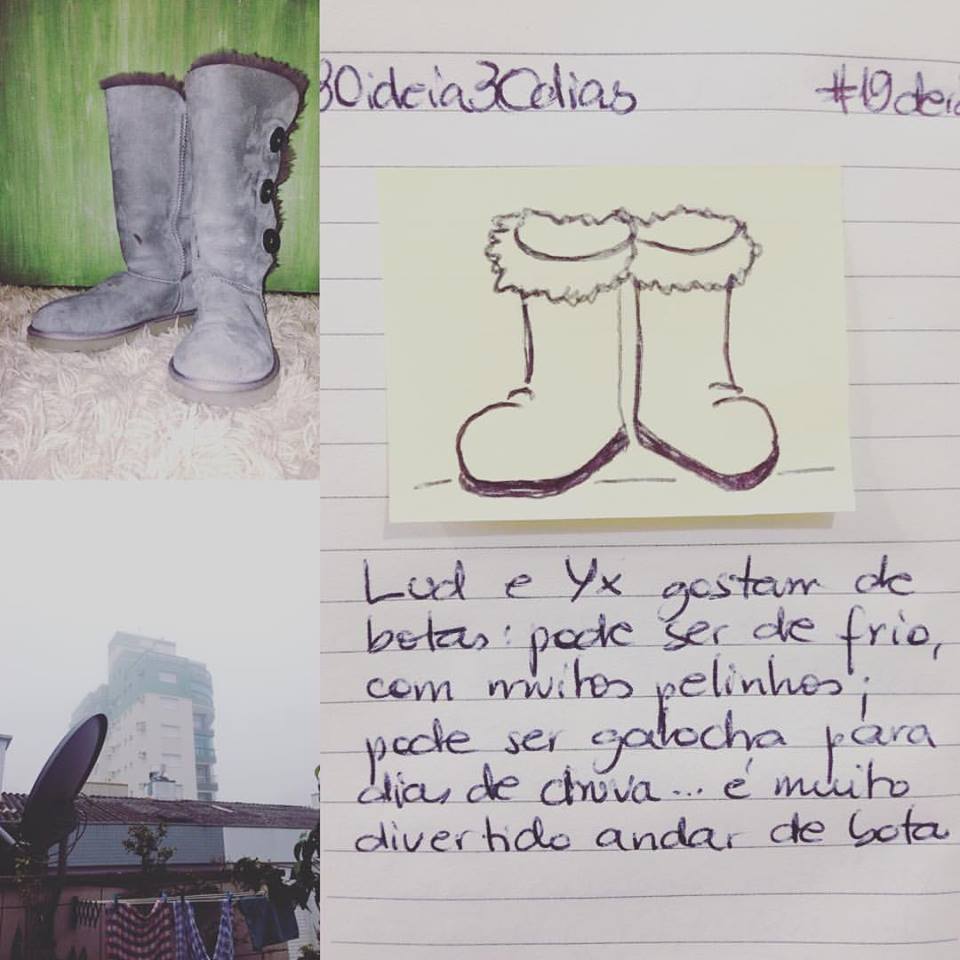 30ideia30dias #19deia
Lud e Yx gostam de
botas: pode ser de frio,
com muitos pelinhos;
pode ser galocha para
dias de chuva... é muito
divertido andar de bota